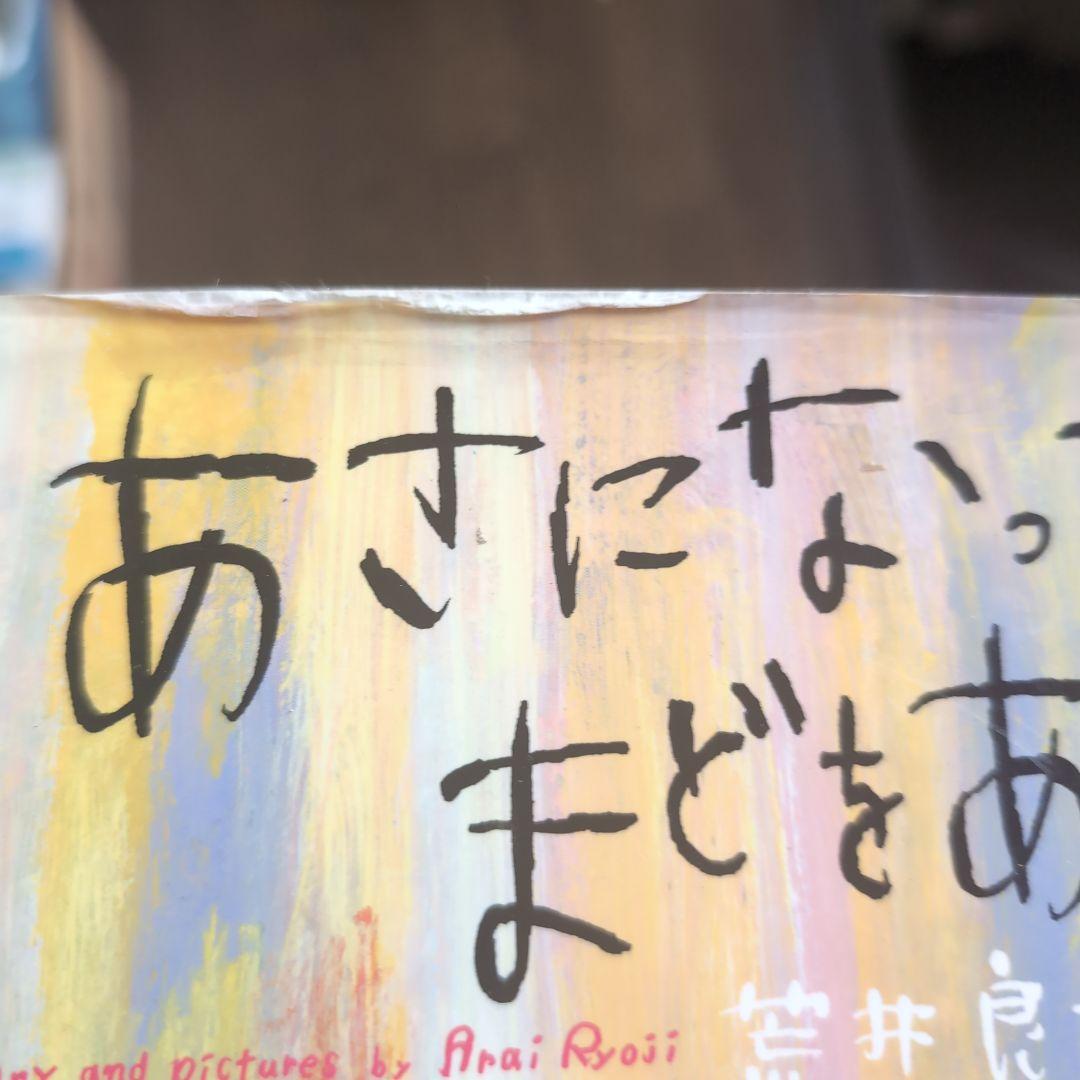 あさになっ
まどをあ
and pictures by Arai Ryoji
荒井良